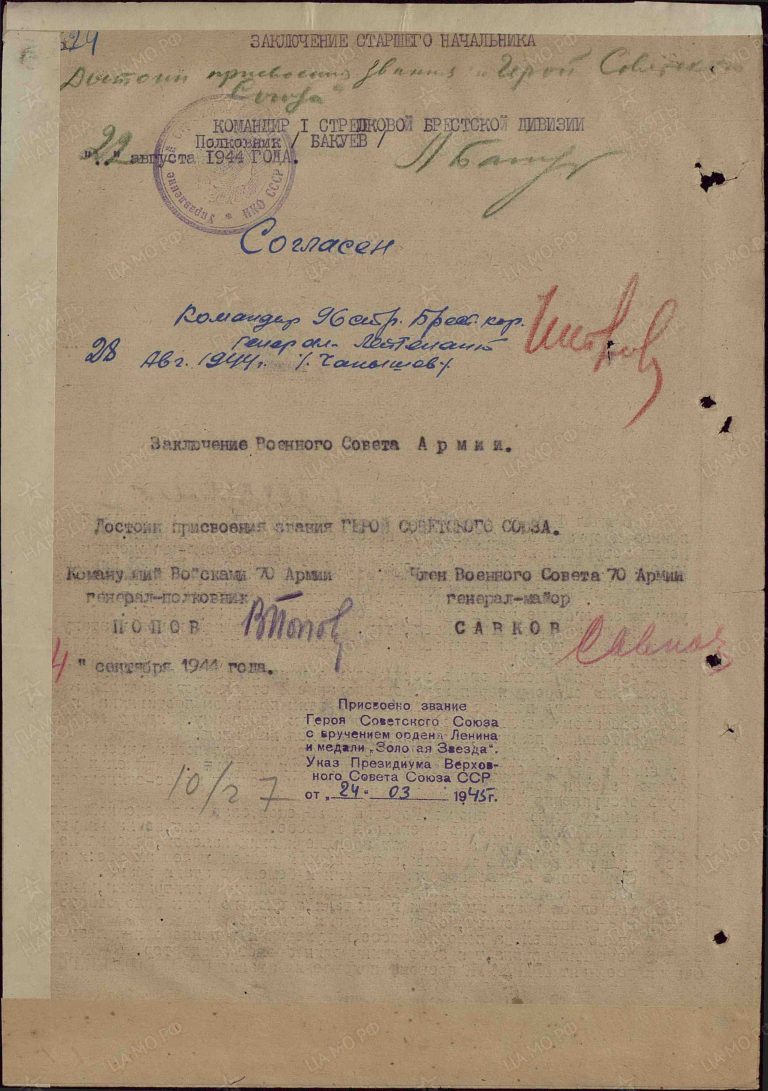 324
ЗАКЛЮЧЕНИЕ СТАРШЕГО НАЧАЛЬНИКА
Достоин присвоения звания „Герой Советского
Союза"
КОМАНДИР I СТРЕЛКОВОЙ БРЕСТСКОЙ ДИВИЗИИ
Полковник / БАКУЕВ /
"22" августа 1944 ГОДА.
Управление
СССР
Согласен
Командир 96 стр. Брест. кор.
генерал-лейтенант
28 Авг. 1944 г. /. Чанышев /
Заключение Военного Совета Армии.
Достоин присвоения звания ГЕРОЙ СОВЕТСКОГО СОЮЗА.
Командующий Войсками 70 Армии
генерал-полковник
ПОПОВ
Член Военного Совета 70 Армии
генерал-майор
САВКОВ
4 " сентября 1944 года.
Присвоено звание
Героя Советского Союза
с вручением ордена Ленина
и медали „Золотая Звезда".
Указ Президиума Верхов-
ного Совета Союза ССР
от „24. 03 1945г.
10/27